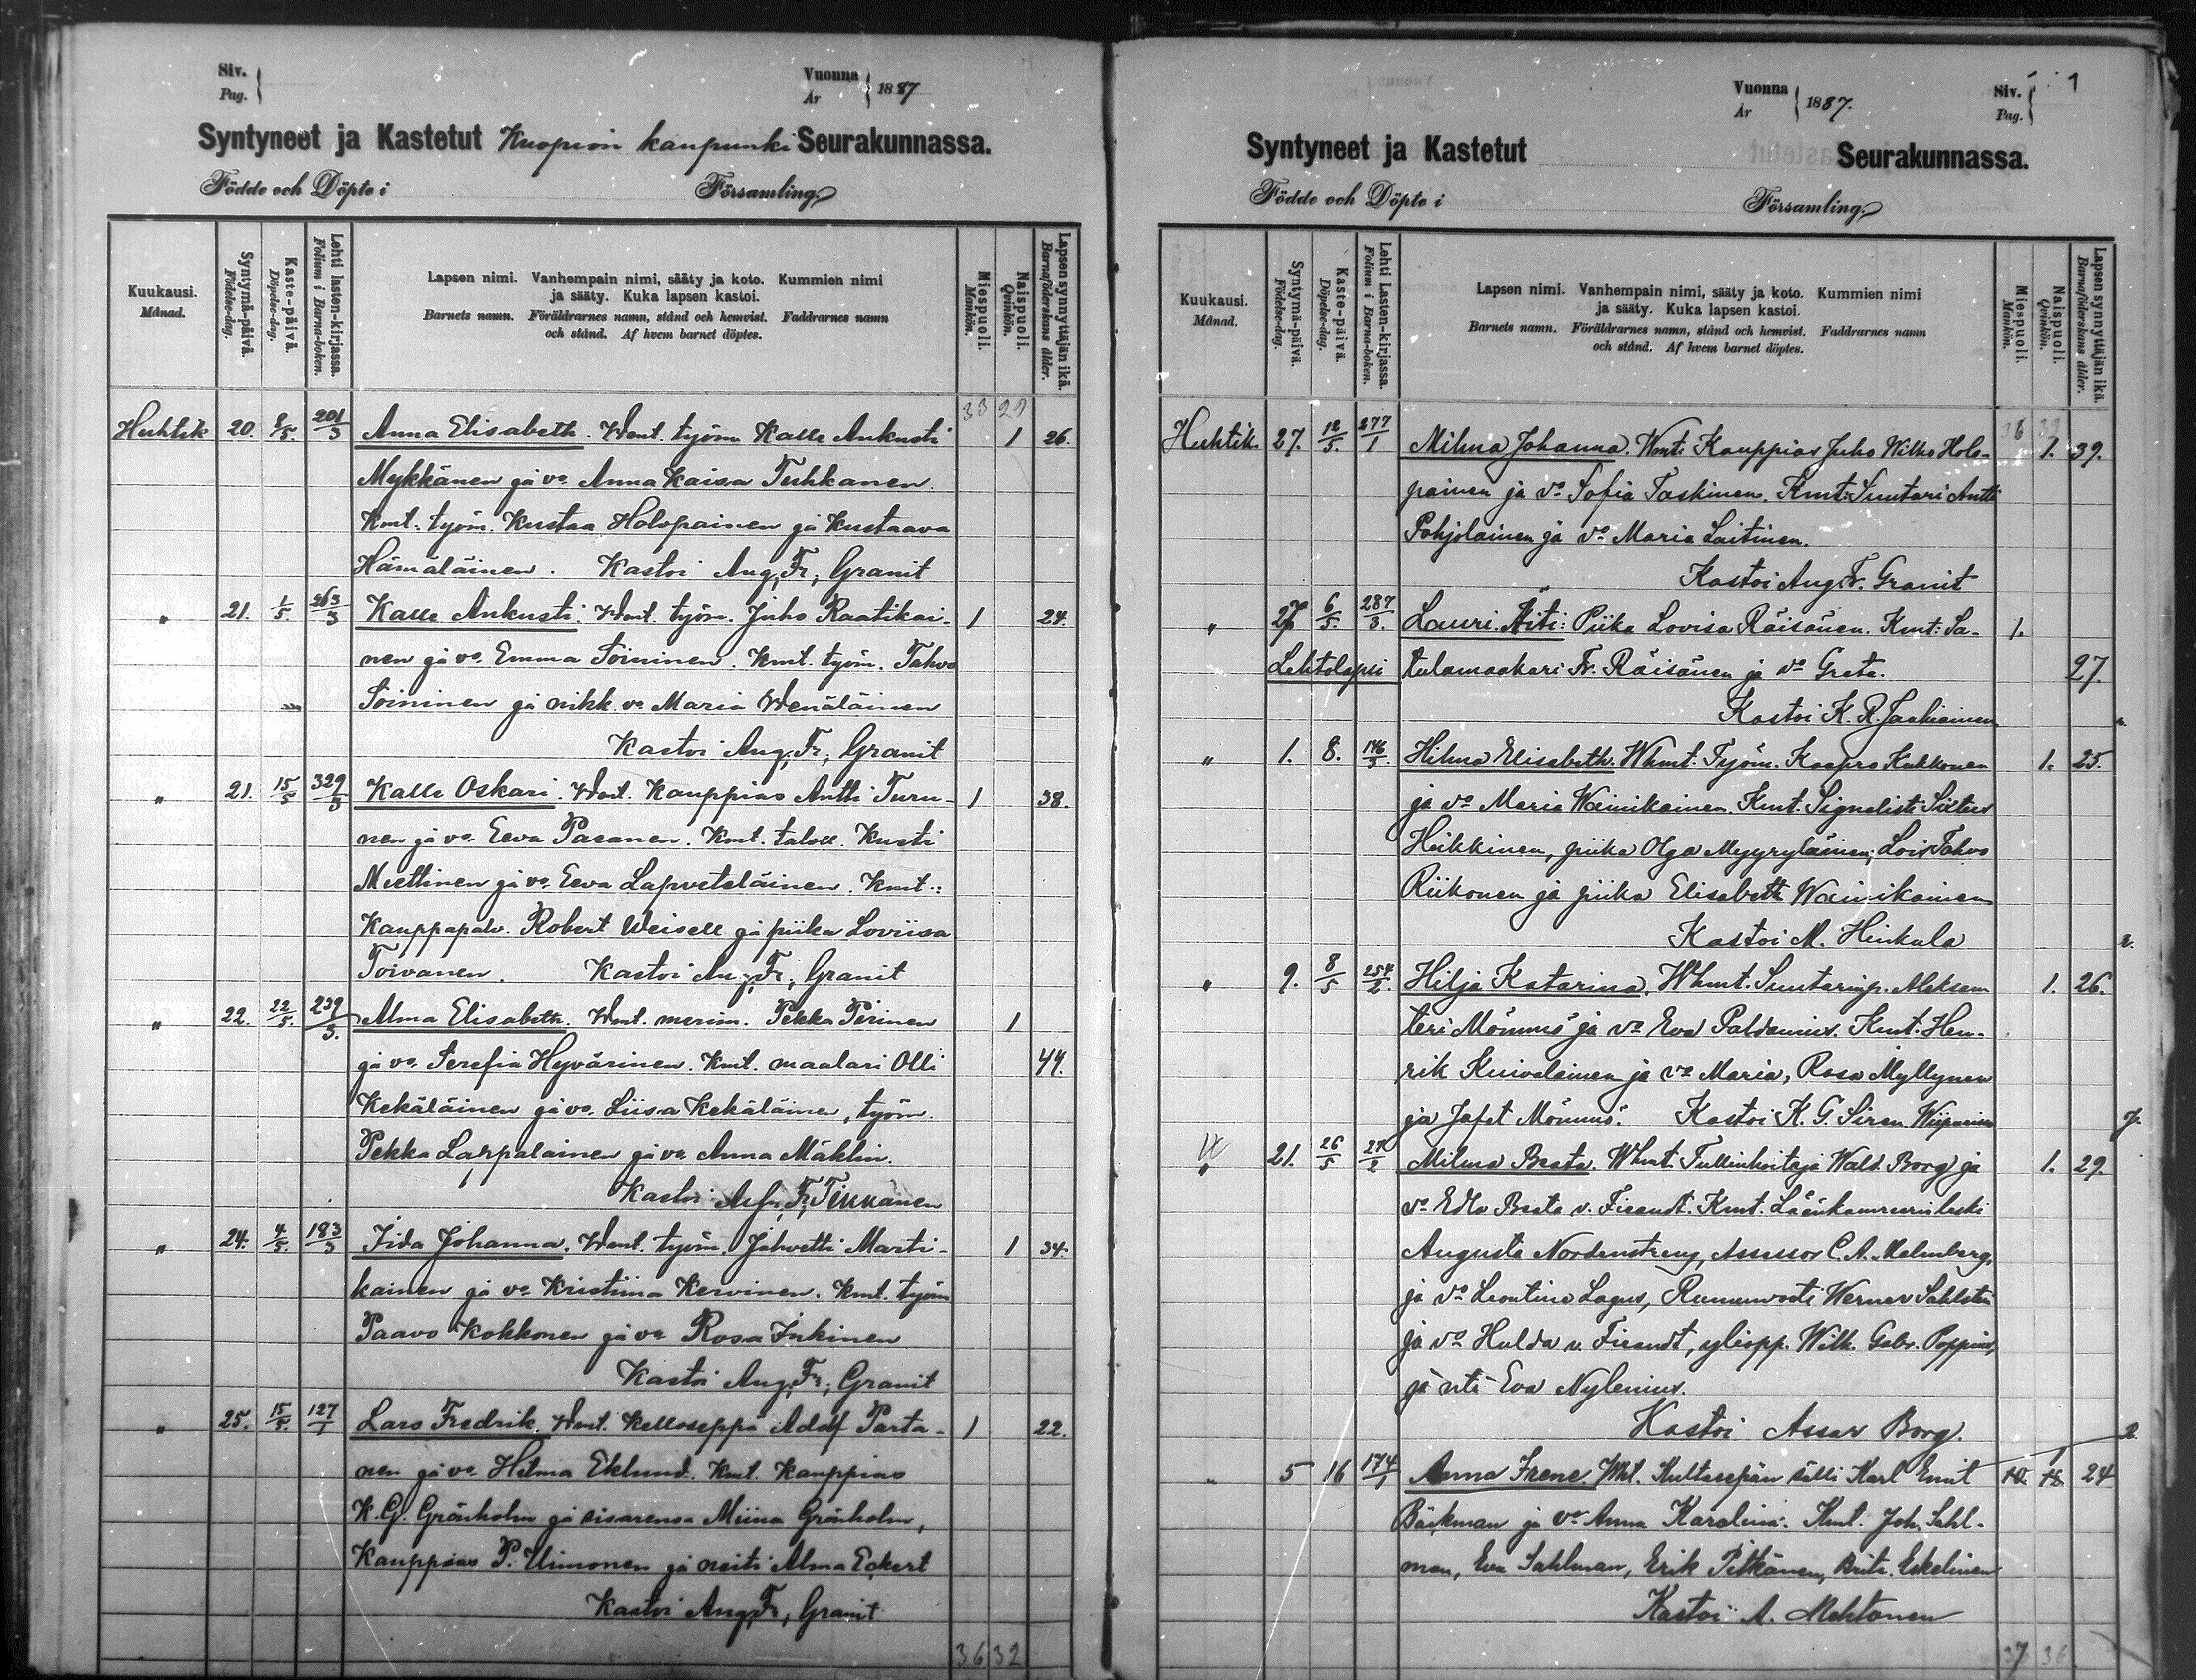 Siv.
Pag.
Vuonna
År 1887
Syntyneet ja Kastetut Kuopion kaupunki Seurakunnassa.
Födde och Döpte i Församling
Kuukausi.
Månad.
Syntymä-päivä.
Födelse-dag.
Kaste-päivä.
Döpelse-dag.
Lehti lasten-kirjassa.
Folium i Barna-boken.
Lapsen nimi. Vanhempain nimi, sääty ja koto. Kummien nimi
ja sääty. Kuka lapsen kastoi.
Barnets namn. Föräldrarnes namn, stånd och hemvist. Faddrarnes namn
och stånd. Af hvem barnet döptes.
Miespuoli.
Mankön.
Naispuoli.
Qvinkön.
Lapsen synnyttäjän ikä.
Barnaföderskans ålder.
33 29
Huhtik 20. 8/5. 201/3 Anna Elisabeth. Wmt. työm Kalle Aukusti 1 26.
Mykkänen ja vo. Anna Kaisa Tuhkanen.
Kmt. työm. Kustaa Holopainen ja Kustaava
Hämäläinen. Kastoi Aug. Fr. Granit
" 21. 1/5. 263/3 Kalle Aukusti. Wmt. työm. Juho Raatikai- 1 24.
nen ja vo. Emma Soininen. Kmt. työm. Tahvo
Soininen ja nikk. vo Maria Wenäläinen
Kastoi Aug. Fr. Granit
" 21. 15/5 329/3 Kalle Oskari. Wmt. Kauppias Antti Turu- 1 38.
nen ja vo. Eeva Pasanen. Kmt. taloll. Kusti
Miettinen ja vo. Eeva Lapveteläinen. Kmt.:
Kauppapalv. Robert Weisell ja piika Loviisa
Toivanen. Kastoi Aug. Fr. Granit
" 22. 22/5. 239/3. Alma Elisabeth. Wmt. merim. Pekka Pirinen 1
ja vo. Serefia Hyvärinen. Kmt. maalari Olli 44.
Kekäläinen ja vo. Liisa Kekäläinen, työm.
Pekka Larpalainen ja vo Anna Mäklin.
Kastoi
" 24. 4/5. 183/3 Iida Johanna. Wmt. työm. Johvetti Marti- 1 34.
kainen ja vo Kristiina Kervinen. Kmt. työm
Paavo Kokkonen ja vo Rosa Inkinen
Kastoi Aug. Fr. Granit
" 25. 15/5. 127/1 Lars Fredrik. Wmt. Kelloseppä Adolf Parta- 1 22.
nen ja vo. Hilma Eklund. Kmt. Kauppias
K. G. Grönholm ja sisarensa Miina Grönholm,
Kauppias P. Uimonen ja neiti Alma Eckert
Kastoi Aug. Fr. Granit
36 32
Vuonna
År 1887.
Siv.
Pag. 1
Syntyneet ja Kastetut Seurakunnassa.
Födde och Döpte i Församling
Kuukausi.
Månad.
Syntymä-päivä.
Födelse-dag.
Kaste-päivä.
Döpelse-dag.
Lehti Lasten-kirjassa.
Folium i Barna-boken.
Lapsen nimi. Vanhempain nimi, sääty ja koto. Kummien nimi
ja sääty. Kuka lapsen kastoi.
Barnets namn. Föräldrarnes namn, stånd och hemvist. Faddrarnes namn
och stånd. Af hvem barnet döptes.
Miespuoli.
Mankön.
Naispuoli.
Qvinkön.
Lapsen synnyttäjän ikä.
Barnaföderskans ålder.
36 32
Huhtik. 27. 12/5. 277/1 Milma Johanna. Wmt: Kauppias Juho Wilho Holo- 1. 39.
painen ja vo Sofia Taskinen. Kmt: Suutari Antti
Pohjolainen ja vo Maria Laitinen.
Kastoi Aug. Fr. Granit
" 27 6/5. 287/3. Lauri. Äiti: Piika Lovisa Räisänen. Kmt: Sa- 1.
Lehtolapsi tulamaakari Fr. Räisänen ja vo Greta. 27.
Kastoi K. R.
" 1. 8. 146/3. Hilma Elisabeth. Whmt. Työm. Kaapro Kukkonen 1. 25.
ja vo Maria Wainikainen. Kmt. Signalisti
Heikkinen, piika Olga Myyryläinen, Lois Tahvo
Riikonen ja piika Elisabeth Wainikainen
Kastoi M. Hinkula
" 9. 8/5 254/2. Hilja Katarina. Whmt. Suutarinp. Aleksan 1. 26.
teri Mömmö ja vo Eva Paldanius. Kmt. Hen-
rik Kuivalainen ja vo Maria, Rosa Myllynen
ja Jafet Mömmö. Kastoi K. G. Siren
" 21. 26/5 Milma Beata. Whmt. Tullinhoitaja Wald. Borg ja 1. 29.
vo Edla Beata v. Fieandt. Kmt. Läänkamreerinleski
Augusta Nordenstreng, Assessor C. A. Malmberg,
ja vo Leontine Lagus, Ruununvouti Werner Sahlstén
ja vo Hulda v. Fieandt, yliopp. Wilh. Gabr. Poppius,
ja nti Eva Nylenius.
Kastoi Assar Borg.
" 5 16 174/1 Anna Irene. Wht. Kultasepän sälli Karl Emil 1 24
Bäckman ja vo Anna Karolina. Kmt. Joh. Sahl-
man, Eva Sahlman, Erik Pitkänen, Brita Eskelinen
Kastoi A. Mehtonen
37 36